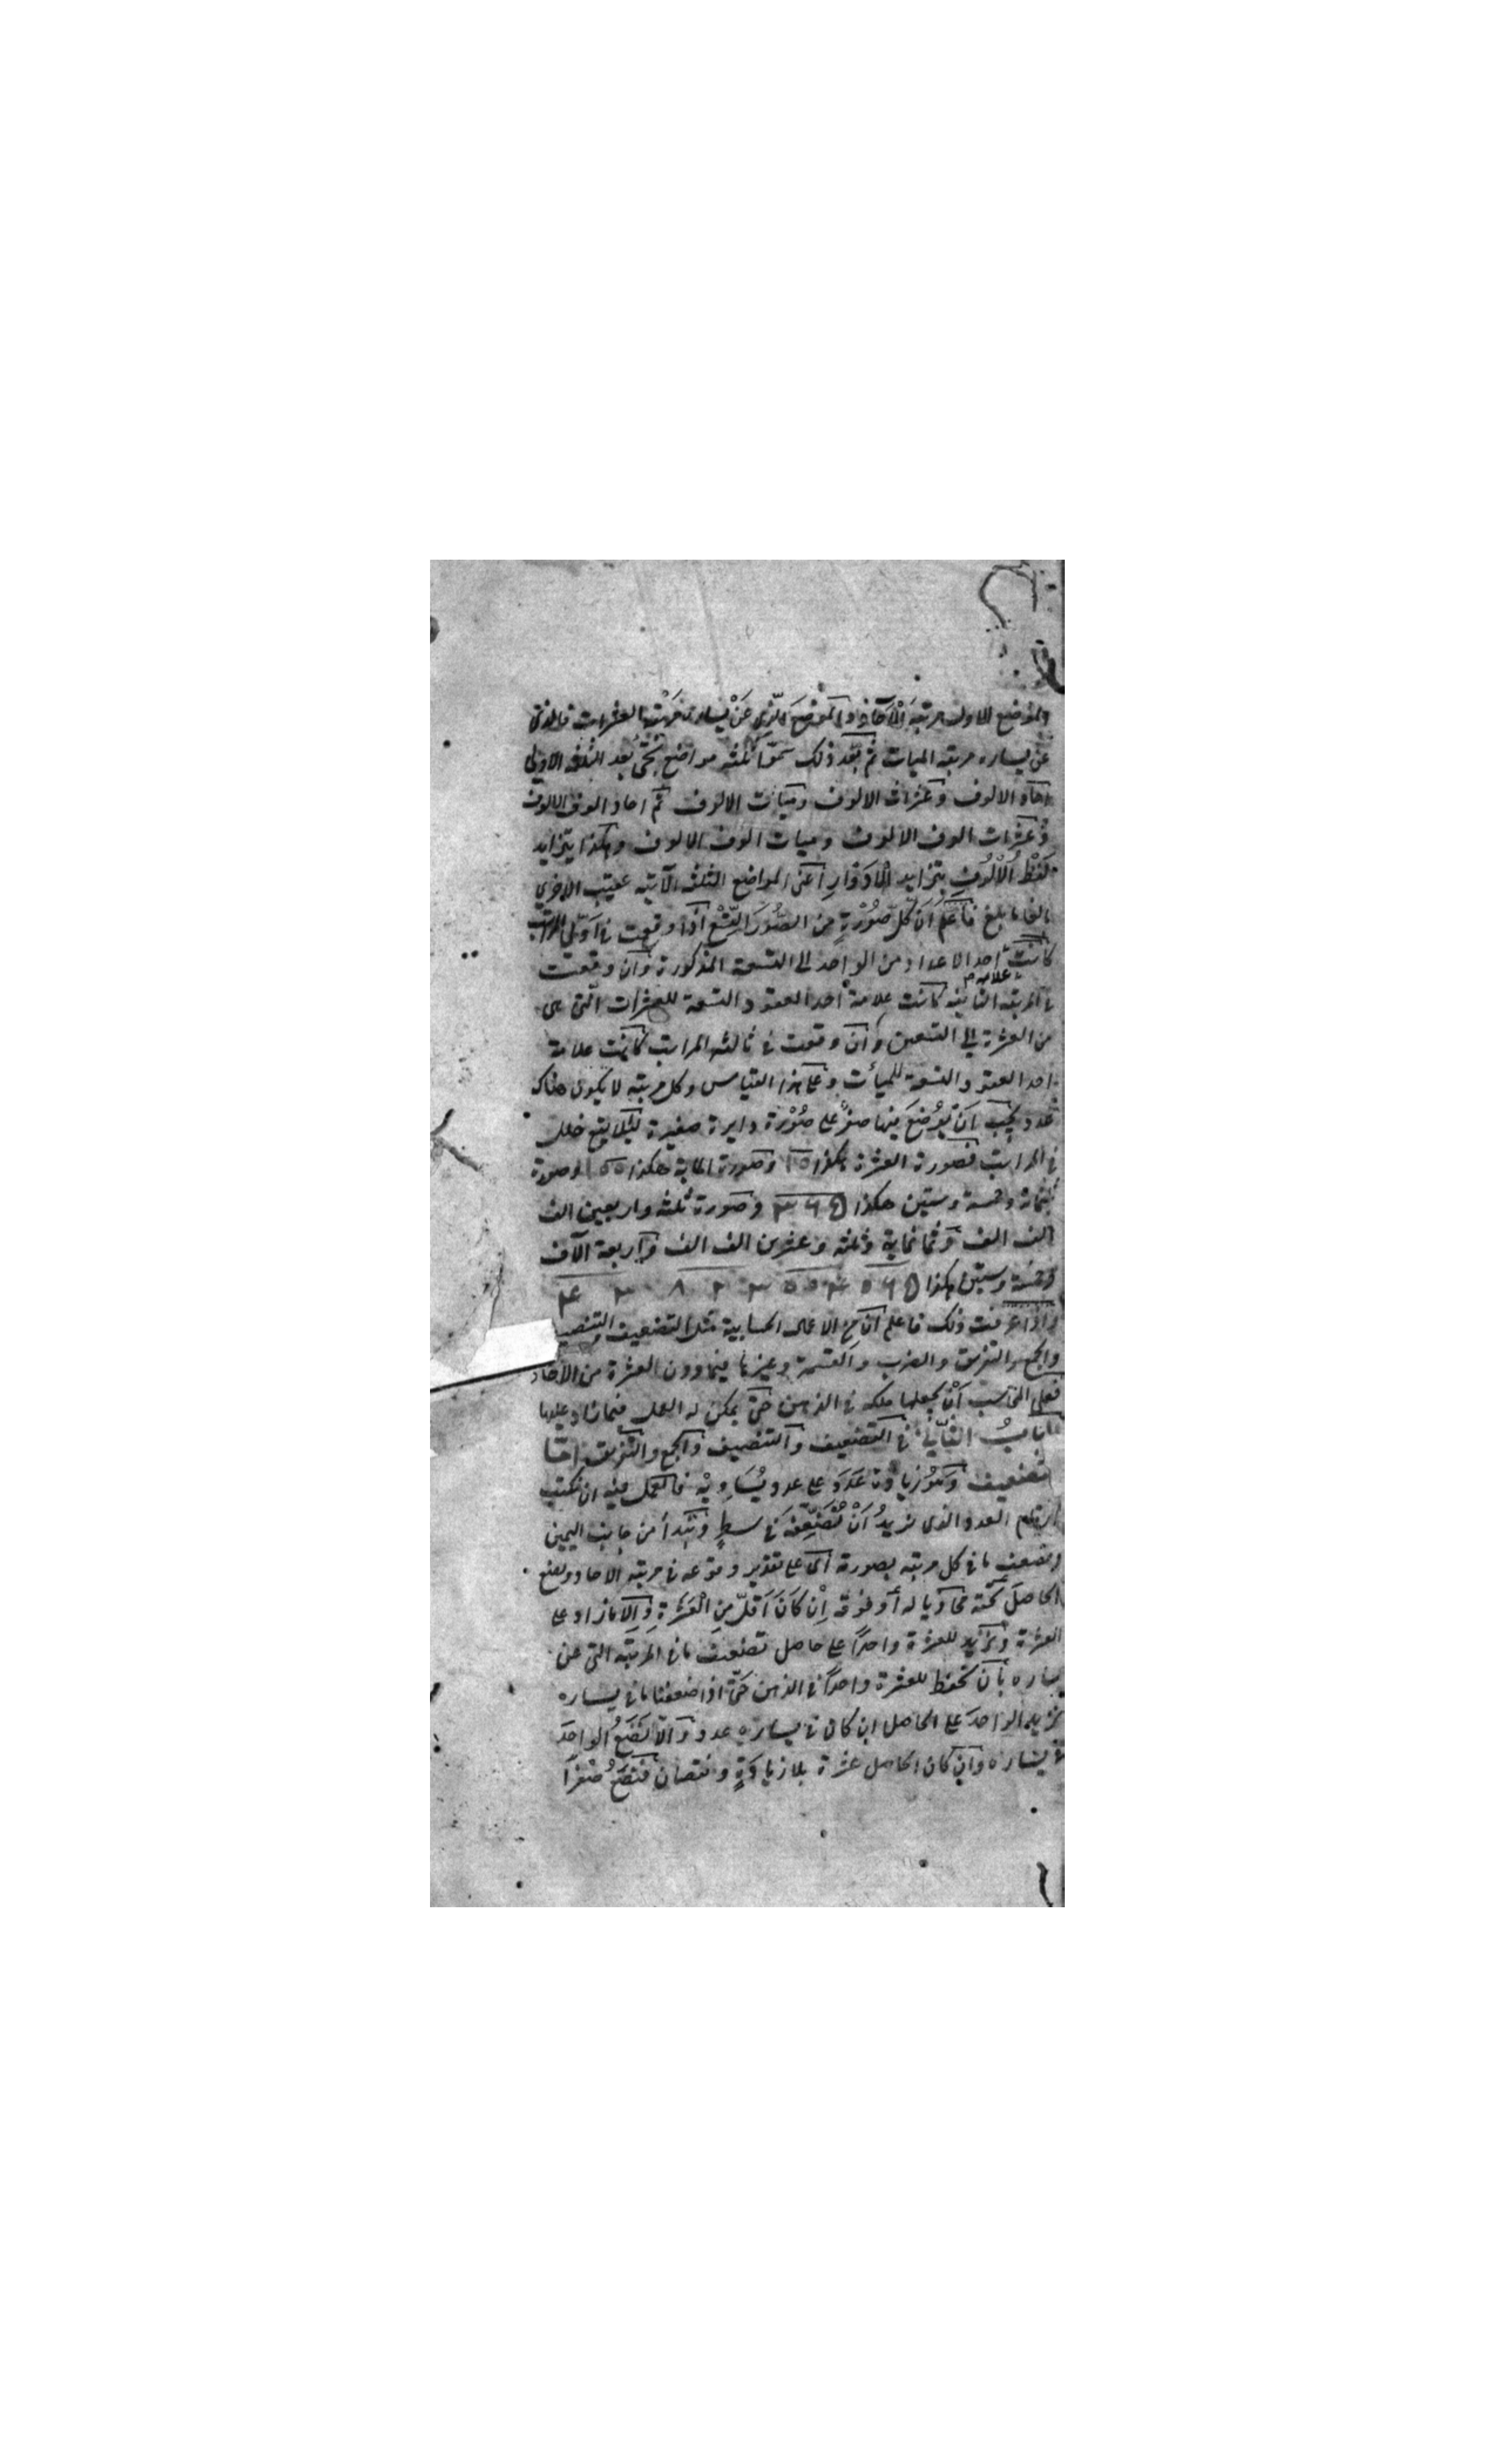 والموضع الاول مرتبة الْآحَادِ والمَوْضِعَ الّذِي عَنْ يساره مَرْتبة العشرات فالذى
عن يساره مرتبة الميات ثم بَعْد ذلك سمّوا ثلثه مواضع تجئ بُعد الثلثة الاولى
احاد الالوف وعشرات الالوف وميات الالوف ثم احاد الوف الالوف
وعشرات الوف الالوف وميات الوف الالوف وهكذا يتزايد
لَفْظُ الْأُلُوُفِ بتزايد الْادَوَارِ أعنى المواضع الثلثه الآتيه عقيب الاخرى
بالغا ما بلغ فاعْلَم أَنَّ كلّ صُوْرَةٍ من الصُّوَر التِّسْعِ اذا وقعت فى اَوّلى المراتب
كانت علامه احد الاعداد من الواحد الى التسعة المذكورة وان وقعت
فى المرتبة الثانيه كانت علامة احد العقود التسعة للعشرات التى هى
من العشرة الى التسعين وان وقعت فى ثالثه المراتب كانت علامة
احد العقود التسعة للميأت وعلى هذا القياس وكل مرتبه لا يكون هناك
عدد يجب اَنْ يُوضَعَ فيها صفرٌ على صُوْرَة دايرة صغيرة لئلا يقع خلل
فى المراتب فصورة العشرة هكذا ١٥ وصورة الماية هكذا ١٥٥ وصورة
ثلثماية وخمسة وستين هكذا ٣٦٥ وصورة ثلثه واربعين الف
الف الف وثمانماية وثلثه وعشرين الف الف واربعة آلاف
وخمسة وستين هكذا
واذا عرفت ذلك فاعلم ان الاعمال الحسابية مثل التضعيف والتنصيف
والجمع والتفريق والضرب والقسمة وغيرها فيما دون العشرة من الآحاد
فعلى المحاسب اَنْ يجعلها ملكه فى الذهن حتّى يمكن له العمل فيما زاد عليها
الباب الثّاني فى التضعيف والتنصيف والجمع والتفريق امّا
التضعيف وهُوَ زيادة عَدَدٍ على عدد يُسَاوِيْه فالعمل فيه ان نكتب
ارقام العدد الذى نريدُ أَنْ نُضَعِّفَهُ فى سطرٍ ونبْتدأ من جانب اليمين
ونضعف ما فى كل مرتبه بصورته اى على تقدير وقوعه فى مرتبة الاحاد ونضع
الحاصلَ تحته محاذيا له أو فوقه اِنْ كَانَ اَقَلَّ مِنِ الْعَشَرَةِ وَاِلّا ما زاد على
العشرة ونزيد للعشرة واحداً على حاصل تضعيف ما فى المرتبة التى عن
يساره بأن نحفظ للعشرة واحداً فى الذهن حَتّى اذا ضعفنا ما فى يساره
نزيد الواحدَ على الحاصل ان كان فى يساره عدد وَاِلّا نَضَعُ الواحدَ
فى يساره وان كان الحاصل عشرة بلا زيادَةٍ ونقصان فنَضَعُ صفراً